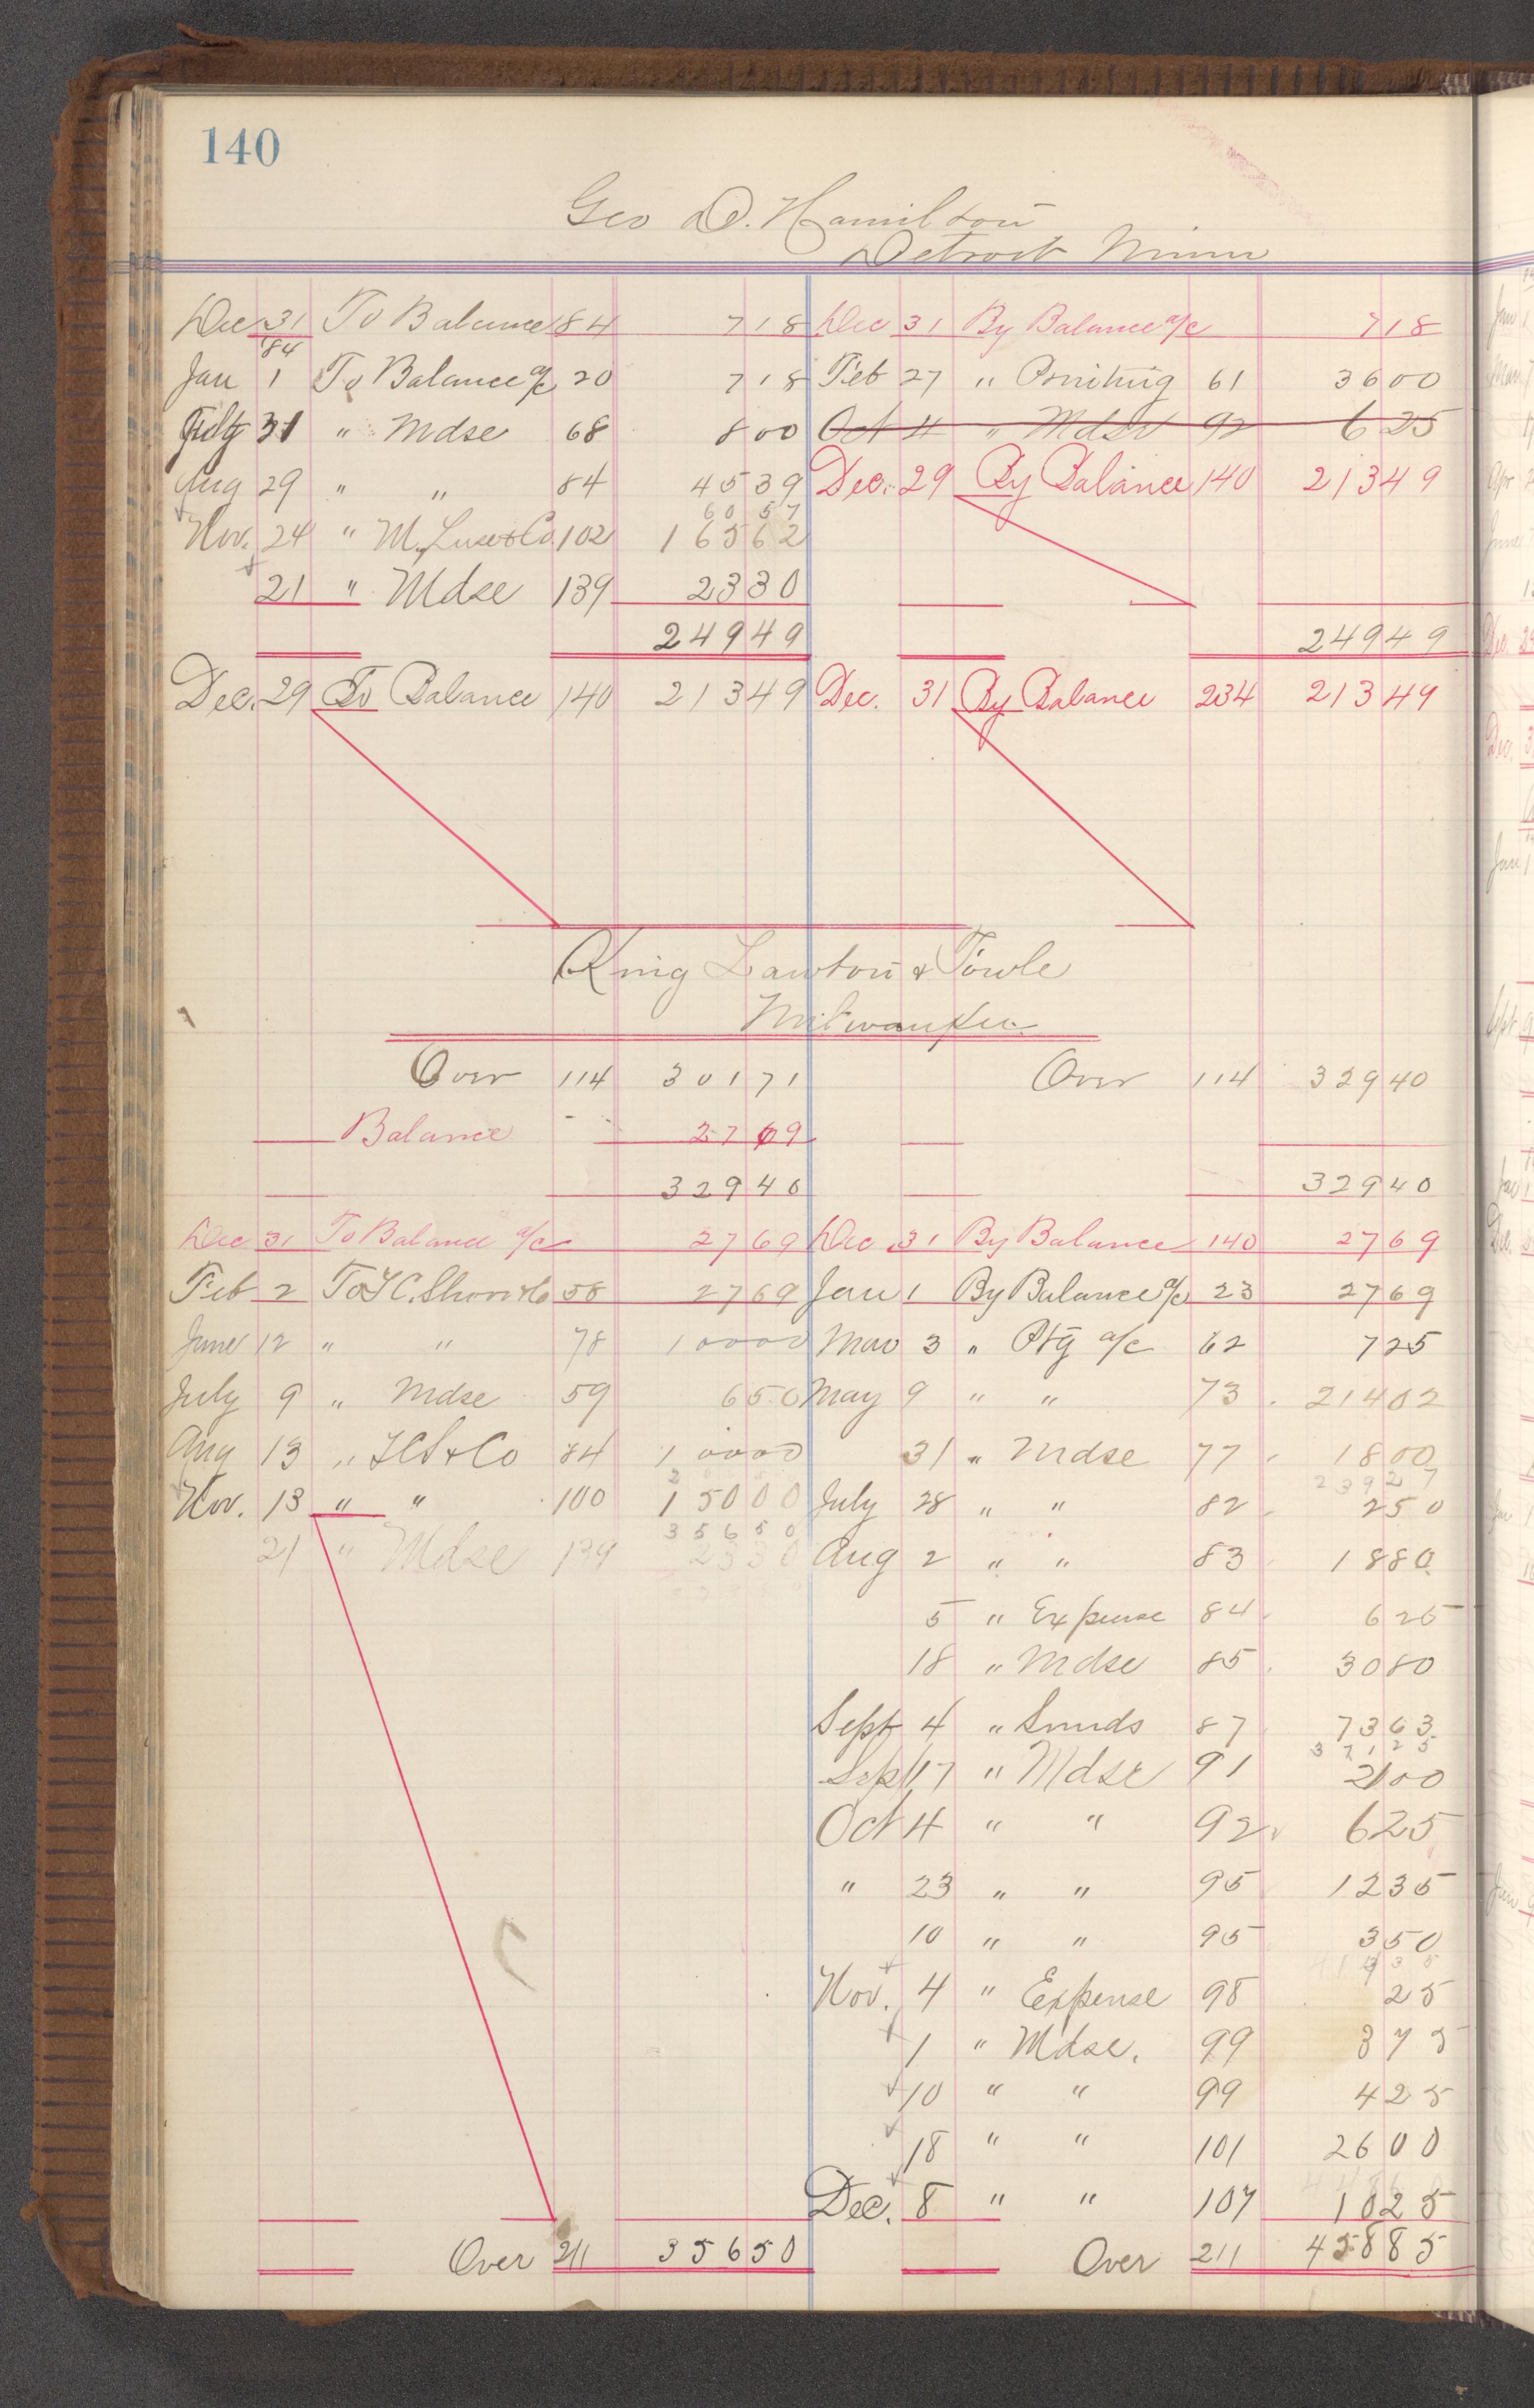 140
Geo D. Hamilton
Detroit Minn
Dec 31 To Balance 84 718 Dec 31 By Balance a/c 718
84
Jan 1 To Balance a/c 20 718 Feb 27 " Printing 61 3600
July 31 " Mdse 68 800 Oct 4 " Mdse 92 625
Aug 29 " " 84 4539 Dec. 29 By Balance 140 21349
6057
Nov. 24 " M. Luse & Co. 102 16562
21 " Mdse 139 2330
24949 24949
Dec. 29 To Balance 140 21349 Dec. 31 By Balance 234 21349
King Lawton & Fowle
Milwaukee
Over 114 30171 Over 114 32940
Balance 2769
32940 32940
Dec 31 To Balance a/c 2769 Dec 31 By Balance 140 2769
Feb 2 To 58 2769 Jan 1 By Balance a/c 23 2769
June 12 " " 78 10000 Mar 3 " Ptg a/c 62 725
July 9 " Mdse 59 650 May 9 " " 73 21402
Aug 13 " & Co 84 10000 31 " Mdse 77 1800
23927
Nov. 13 " " 100 15000 July 28 " " 82 250
35650
21 " Mdse 139 2330 Aug 2 " " 83 1880
5 " Expense 84 625
18 " Mdse 85 3080
Sept 4 " 87 7363
37125
Sept 17 " Mdse 91 2100
Oct 4 " " 92 625
" 23 " " 95 1235
10 " " 95 350
Nov. 4 " Expense 98 25
1 " Mdse. 99 375
10 " " 99 425
18 " " 101 2600
Dec. 8 " " 107 1025
Over 211 35650 Over 211 45885